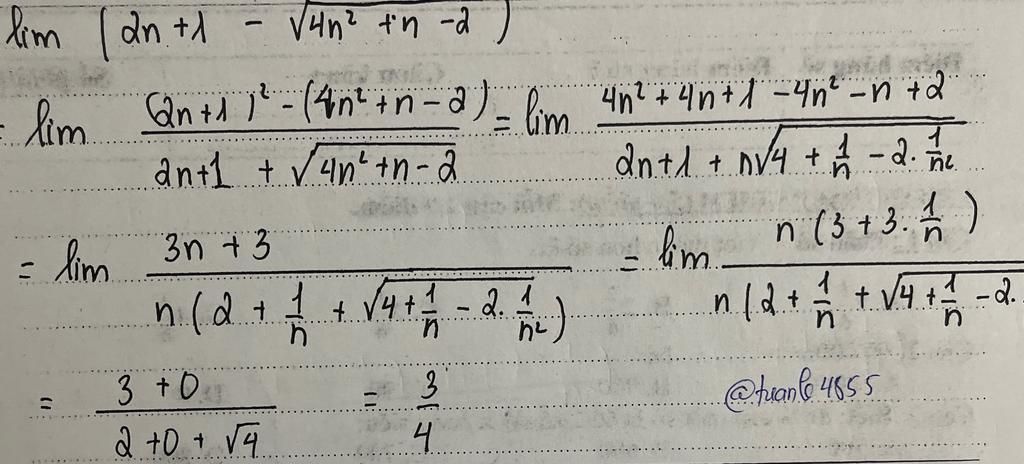 lim (2n+1 - √(4n² + n - 2))
= lim ((2n+1)² - (4n² + n - 2))/(2n+1 + √(4n² + n - 2)) = lim (4n² + 4n + 1 - 4n² - n + 2)/(2n+1 + n√(4 + 1/n - 2.1/n²))
= lim (3n + 3)/(n(2 + 1/n + √(4 + 1/n - 2.1/n²))) = lim (n(3 + 3.1/n))/(n(2 + 1/n + √(4 + 1/n - 2.
= (3 + 0)/(2 + 0 + √4) = 3/4 @tuanle4855